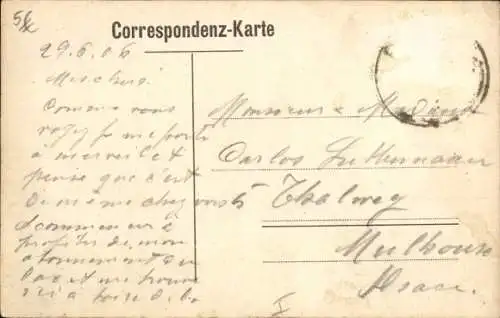 58
Correspondenz-Karte
29.6.06
Mes chers!
Comme vous
voyez je me porte
à merveille et
pense que c'est
de même chez vous
Je commence à
profiter de mon
abonnement du
lac et me trouve
ici à
Monsieur & Madame
Carlos
Thalweg
Mulhouse
Alsace.
I